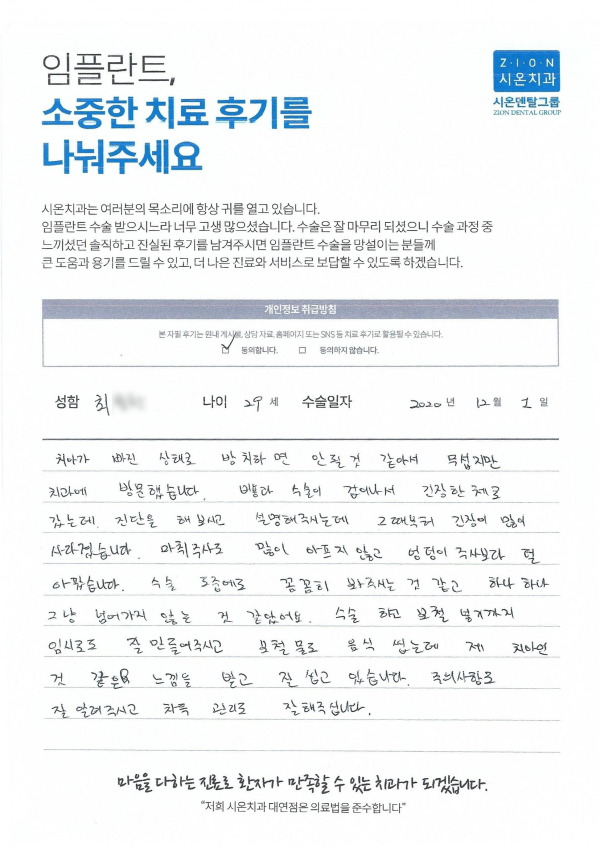 임플란트,
소중한 치료 후기를
나눠주세요
Z·I·O·N
시온치과
시온덴탈그룹
ZION DENTAL GROUP
시온치과는 여러분의 목소리에 항상 귀를 열고 있습니다.
임플란트 수술 받으시느라 너무 고생 많으셨습니다. 수술은 잘 마무리 되셨으니 수술 과정 중
느끼셨던 솔직하고 진실된 후기를 남겨주시면 임플란트 수술을 망설이는 분들께
큰 도움과 용기를 드릴 수 있고, 더 나은 진료와 서비스로 보답할 수 있도록 하겠습니다.
개인정보 취급방침
본 자필 후기는 원내 게시물, 상담 자료, 홈페이지 또는 SNS 등 치료 후기로 활용될 수 있습니다.
동의합니다. 동의하지 않습니다.
성함 최 나이 29 세 수술일자 2020 년 12 월 1 일
치아가 빠진 상태로 방치하면 안될것 같아서 무섭지만
치과에 방문했습니다. 수술이 겁이나서 긴장한 체로
갔는데. 진단을 해 보시고 설명해주시는데 그때부터 긴장이 많이
사라졌습니다. 마취주사도 많이 아프지 않고 엉덩이 주사보다 덜
아팠습니다. 수술 도중에도 꼼꼼히 봐주시는 것 같고 하나 하나
그냥 넘어가지 않는 것 같았어요. 수술 하고 보철 넣기까지
임시로도 잘 만들어주시고 보철물로 음식 씹는데 제 치아인
것 같은 느낌을 받고 잘 씹고 있습니다. 주의사항도
잘 알려주시고 차후 관리도 잘해주십니다.
마음을 다하는 진료로 환자가 만족할 수 있는 치과가 되겠습니다.
“저희 시온치과 대연점은 의료법을 준수합니다”